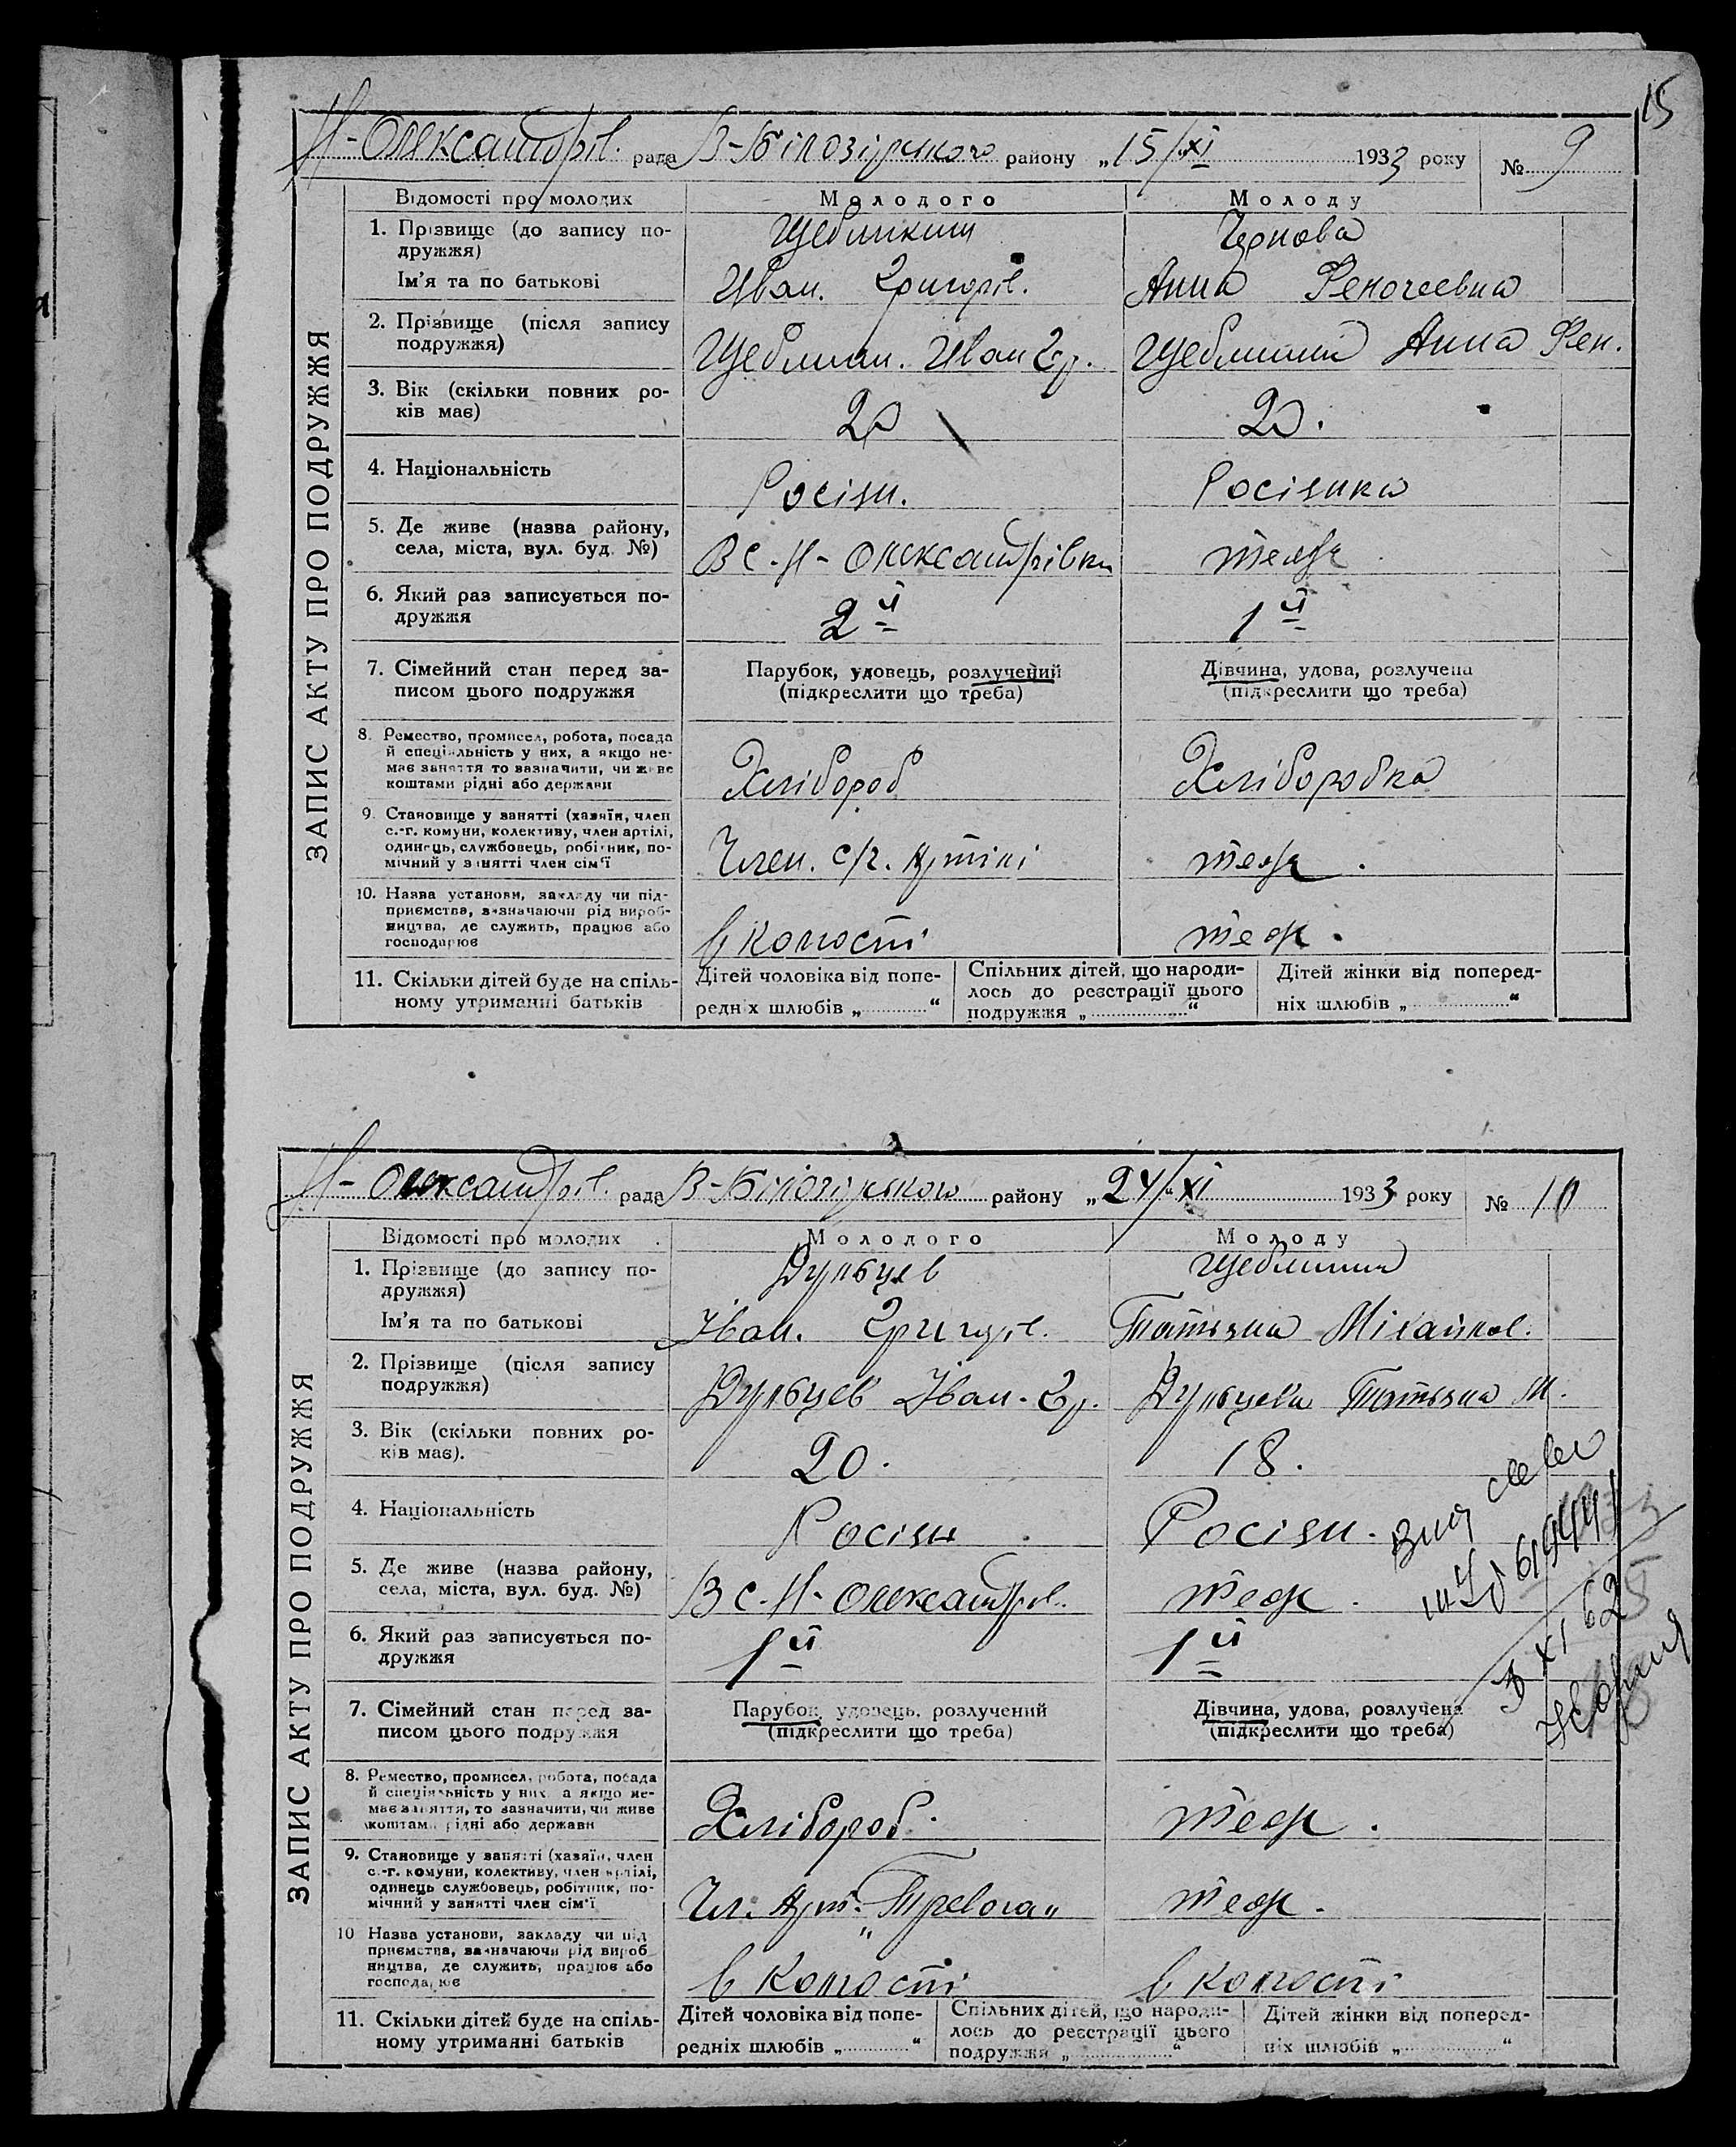 15
Н-Олександрів. рада В-Білозірського району „15/XI 1933 року № 9
ЗАПИС АКТУ ПРО ПОДРУЖЖЯ
Відомості про молодих Молодого Молоду
1. Прізвище (до запису по-
дружжя)
Чернова
Ім'я та по батькові Иван. Григорів. Анна
2. Прізвище (після запису
подружжя)
Иван Гр. Анна
3. Вік (скільки повних ро-
ків має)
20 20.
4. Національність Росіян. Росіянка
5. Де живе (назва району,
села, міста, вул. буд. №)
В с. Н-Олександрівки теж
6. Який раз записується по-
дружжя
2й 1й
7. Сімейний стан перед за-
писом цього подружжя
Парубок, удовець, розлучений
(підкреслити що треба)
Дівчина, удова, розлучена
(підкреслити що треба)
8. Ремество, промисел, робота, посада
й спеціяльність у них, а якщо не-
має заняття то зазначити, чи живе
коштами рідні або держави
Хлібороб Хліборобка
9. Становище у занятті (хазяїн, член
с.-г. комуни, колективу, член артілі,
одинець, службовець, робітник, по-
мічний у занятті член сім'ї
Член. с/г. Артілі теж.
10. Назва установи, закладу чи під-
приємства, зазначаючи рід вироб-
ництва, де служить, працює або
господарює
в колгоспі теж.
11. Скільки дітей буде на спіль-
ному утриманні батьків
Дітей чоловіка від попе-
редніх шлюбів „ “
Спільних дітей, що народи-
лось до реєстрації цього
подружжя „ “
Дітей жінки від поперед-
ніх шлюбів „ “
Н-Олександрів. рада В-Білозірського району „24/XI 1933 року № 10
ЗАПИС АКТУ ПРО ПОДРУЖЖЯ
Відомості про молодих Молодого Молоду
1. Прізвище (до запису по-
дружжя)
Дульцев
Ім'я та по батькові Іван. Григорів. Татьяна Міхайлов.
2. Прізвище (після запису
подружжя)
Дульцев Іван. Гр. Дульцева Татьяна М.
3. Вік (скільки повних ро-
ків має).
20. 18.
4. Національність Росіян Росіян.
5. Де живе (назва району,
села, міста, вул. буд. №)
В с. Н-Олександрів. теж.
6. Який раз записується по-
дружжя
1й 1й
7. Сімейний стан перед за-
писом цього подружжя
Парубок, удовець, розлучений
(підкреслити що треба)
Дівчина, удова, розлучена
(підкреслити що треба)
8. Ремество, промисел, робота, посада
й спеціяльність у них, а якщо не-
має заняття, то зазначити, чи живе
коштами рідні або держави
Хлібороб. теж.
9. Становище у занятті (хазяїн, член
с.-г. комуни, колективу, член артілі,
одинець службовець, робітник, по-
мічний у занятті член сім'ї
Чл. Арт. „Тревога„ теж.
10 Назва установи, закладу чи під
приємства, зазначаючи рід вироб
ництва, де служить, працює або
господарює
в колгоспі в колгоспі
11. Скільки дітей буде на спіль-
ному утриманні батьків
Дітей чоловіка від попе-
редніх шлюбів „ “
Спільних дітей, що народи-
лось до реєстрації цього
подружжя „ “
Дітей жінки від поперед-
ніх шлюбів „ “
XI 62